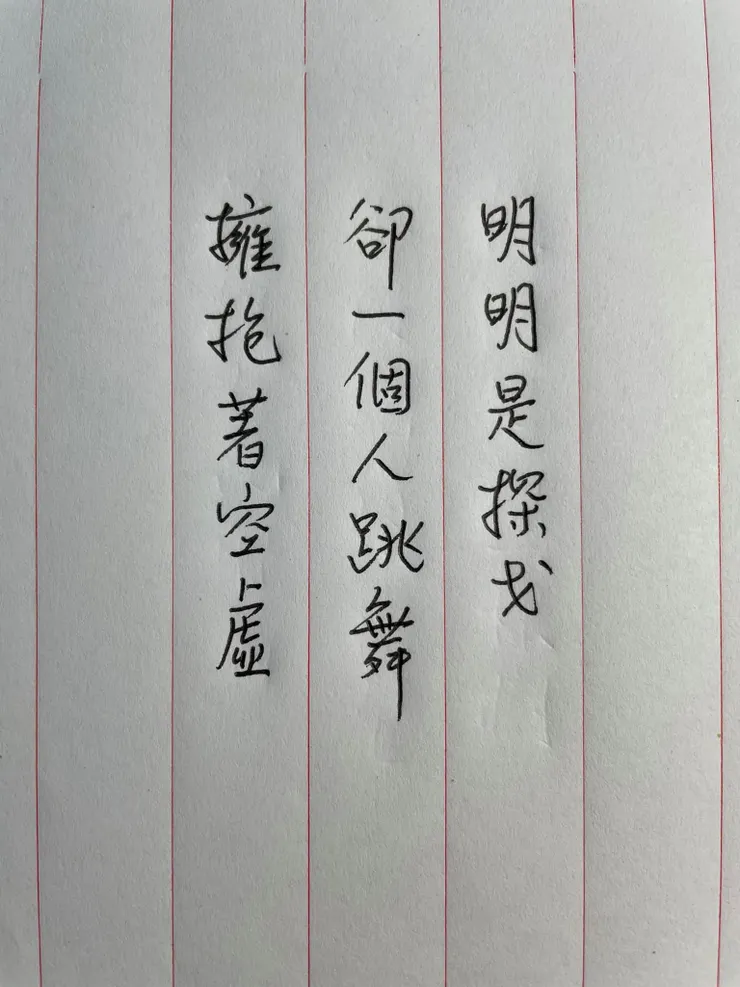 明明是探戈
卻一個人跳舞
擁抱著空虛